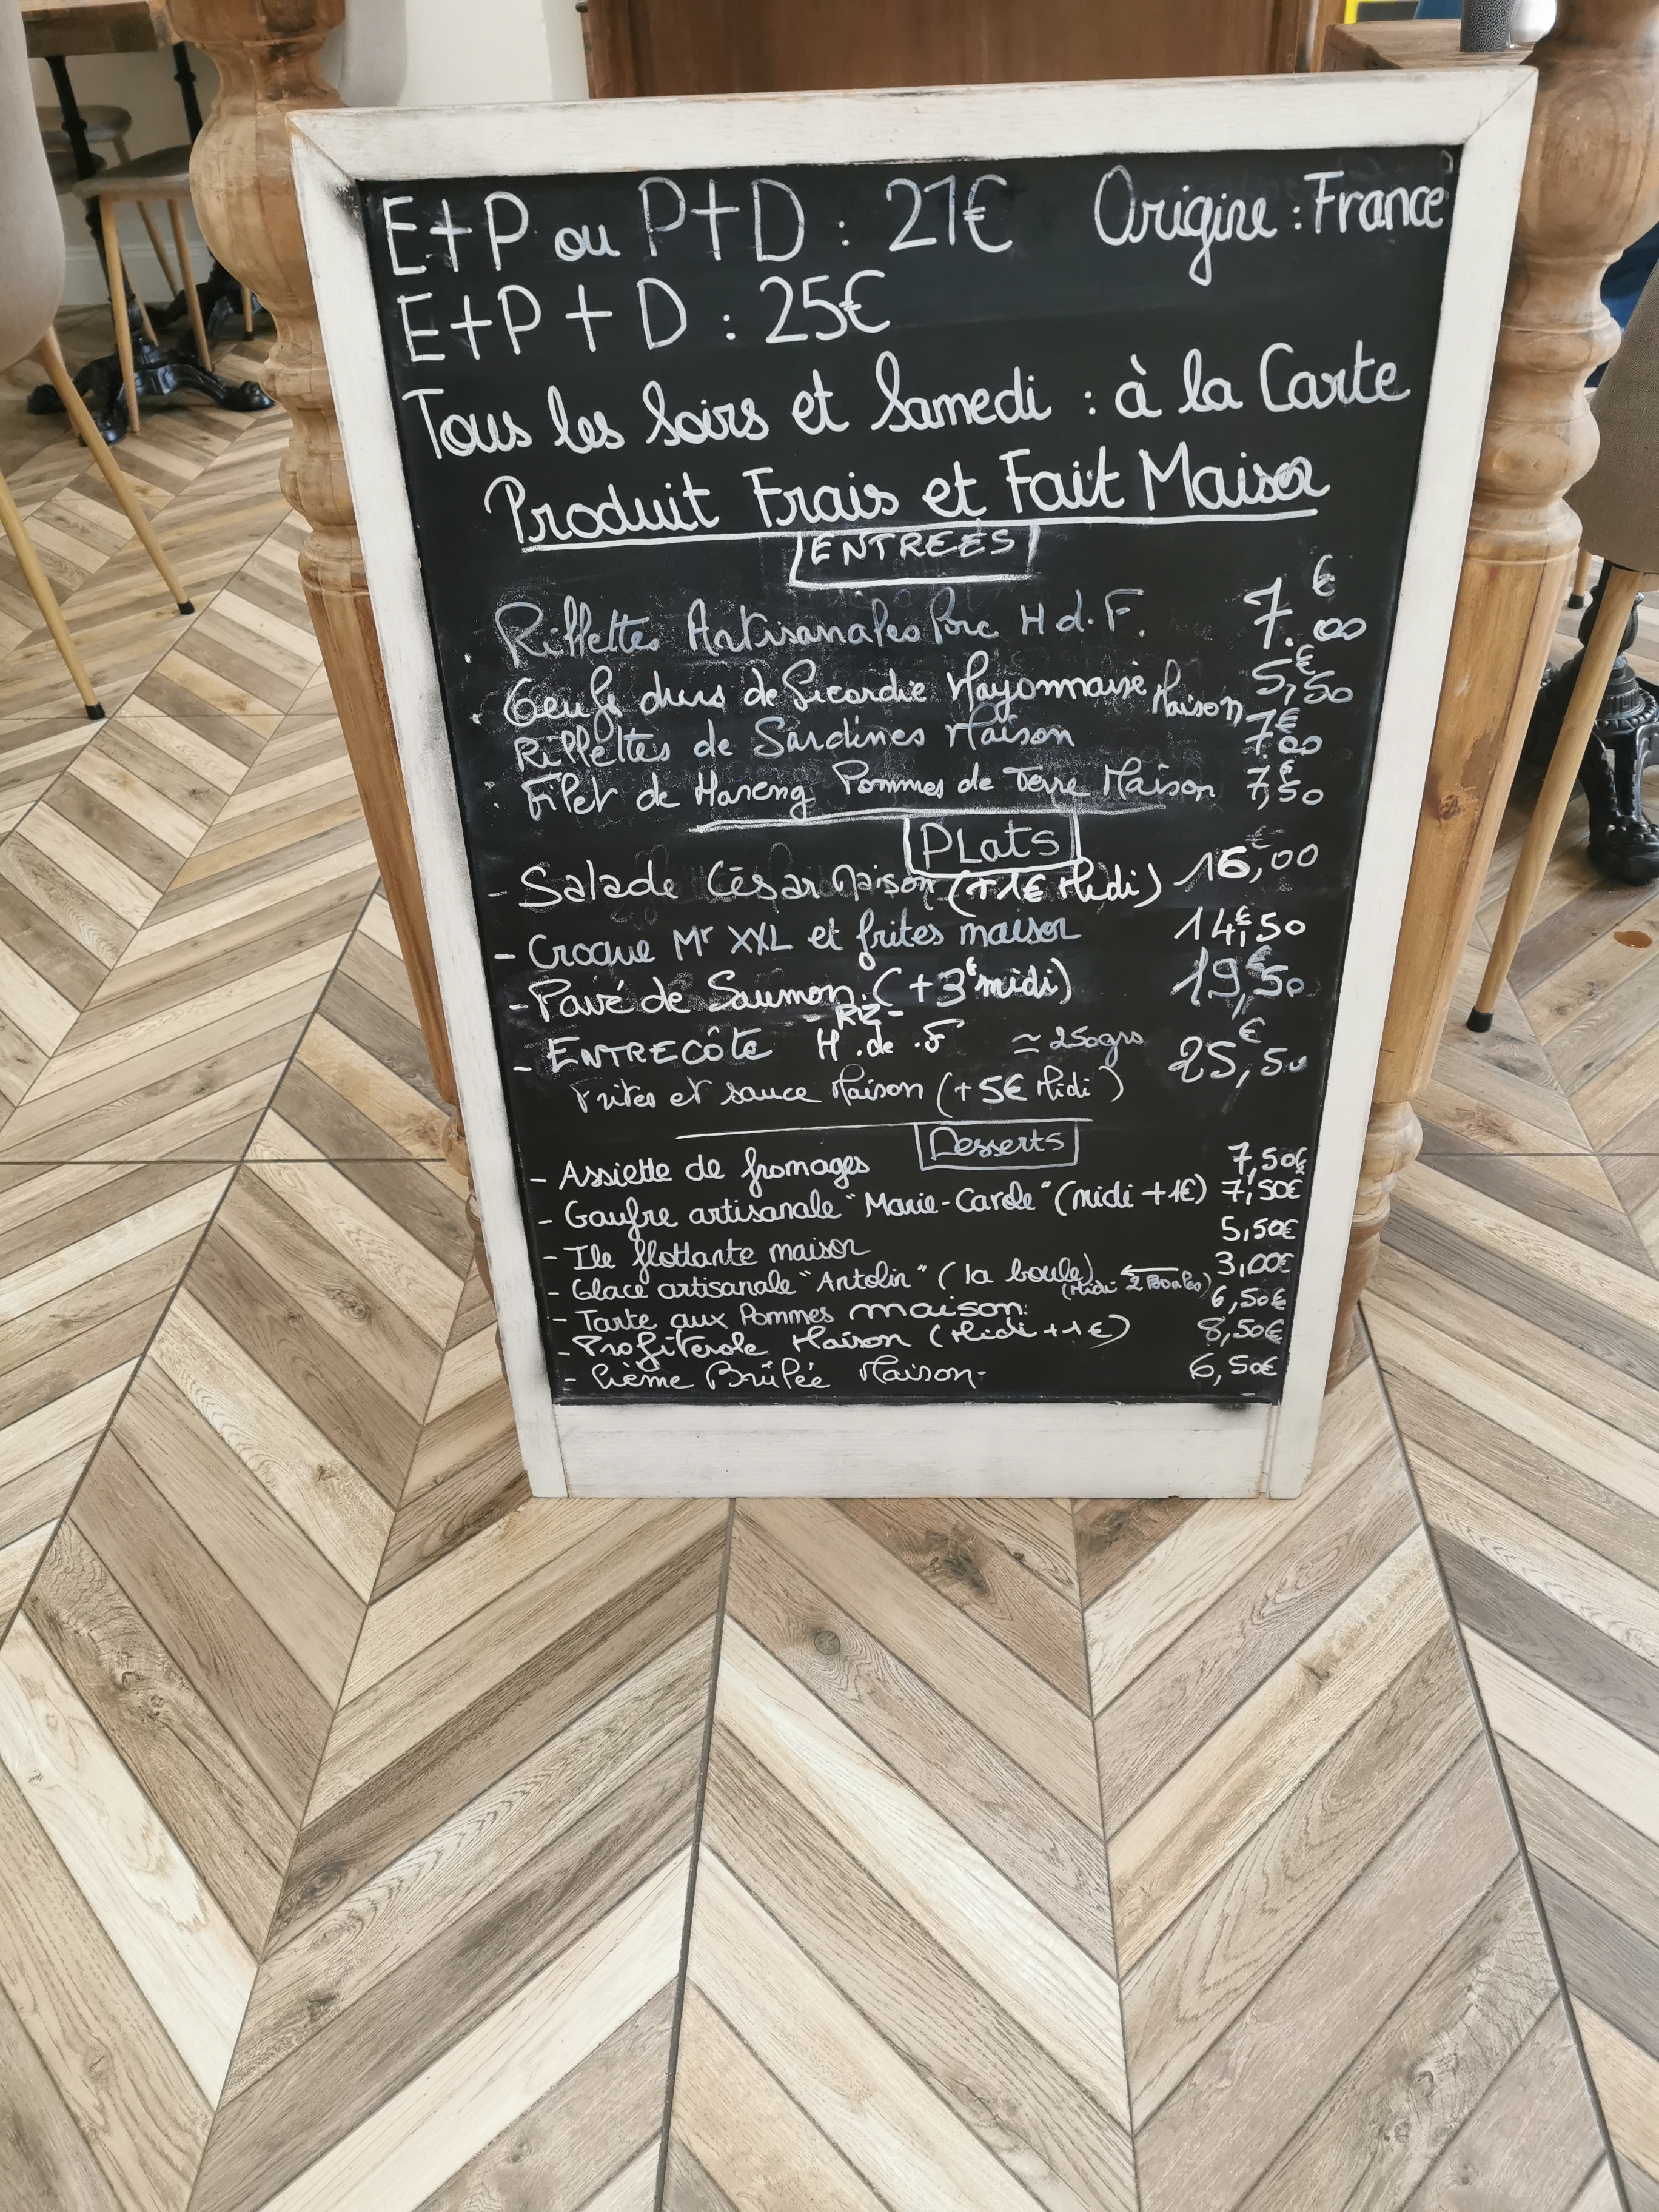 E+P ou P+D : 21€ Origine : France
E+P+D : 25€
Tous les Soirs et Samedi : à la Carte
Produit Frais et Fait Maison
ENTREES
Rillettes Artisanales Porc H d. F. 7.€00
Oeufs durs de Picardie Mayonnaise Maison 5,€50
Rillettes de Sardines Maison 7€00
Filet de Hareng Pommes de Terre Maison 7,€50
PLats
- Salade César Maison (+1€ Midi) 16,€00
- Croque Mr XXL et frites maison 14,€50
- Pavé de Saumon. (+3€ midi) 19,€50
- Riz -
- ENTRECôte H.de.F ≃ 250grs 25,€50
Frites et sauce Maison (+5€ Midi)
Desserts
- Assiette de fromages 7,50€
- Gaufre artisanale "Marie-Carole" (midi +1€) 7,50€
- Ile flottante maison 5,50€
- Glace artisanale "Antolin" (la boule) ← 3,00€
(Midi 2 Boules)
- Tarte aux Pommes maison. 6,50€
- Profiterole Maison (Midi +1€) 8,50€
- Crème Brûlée Maison- 6,50€